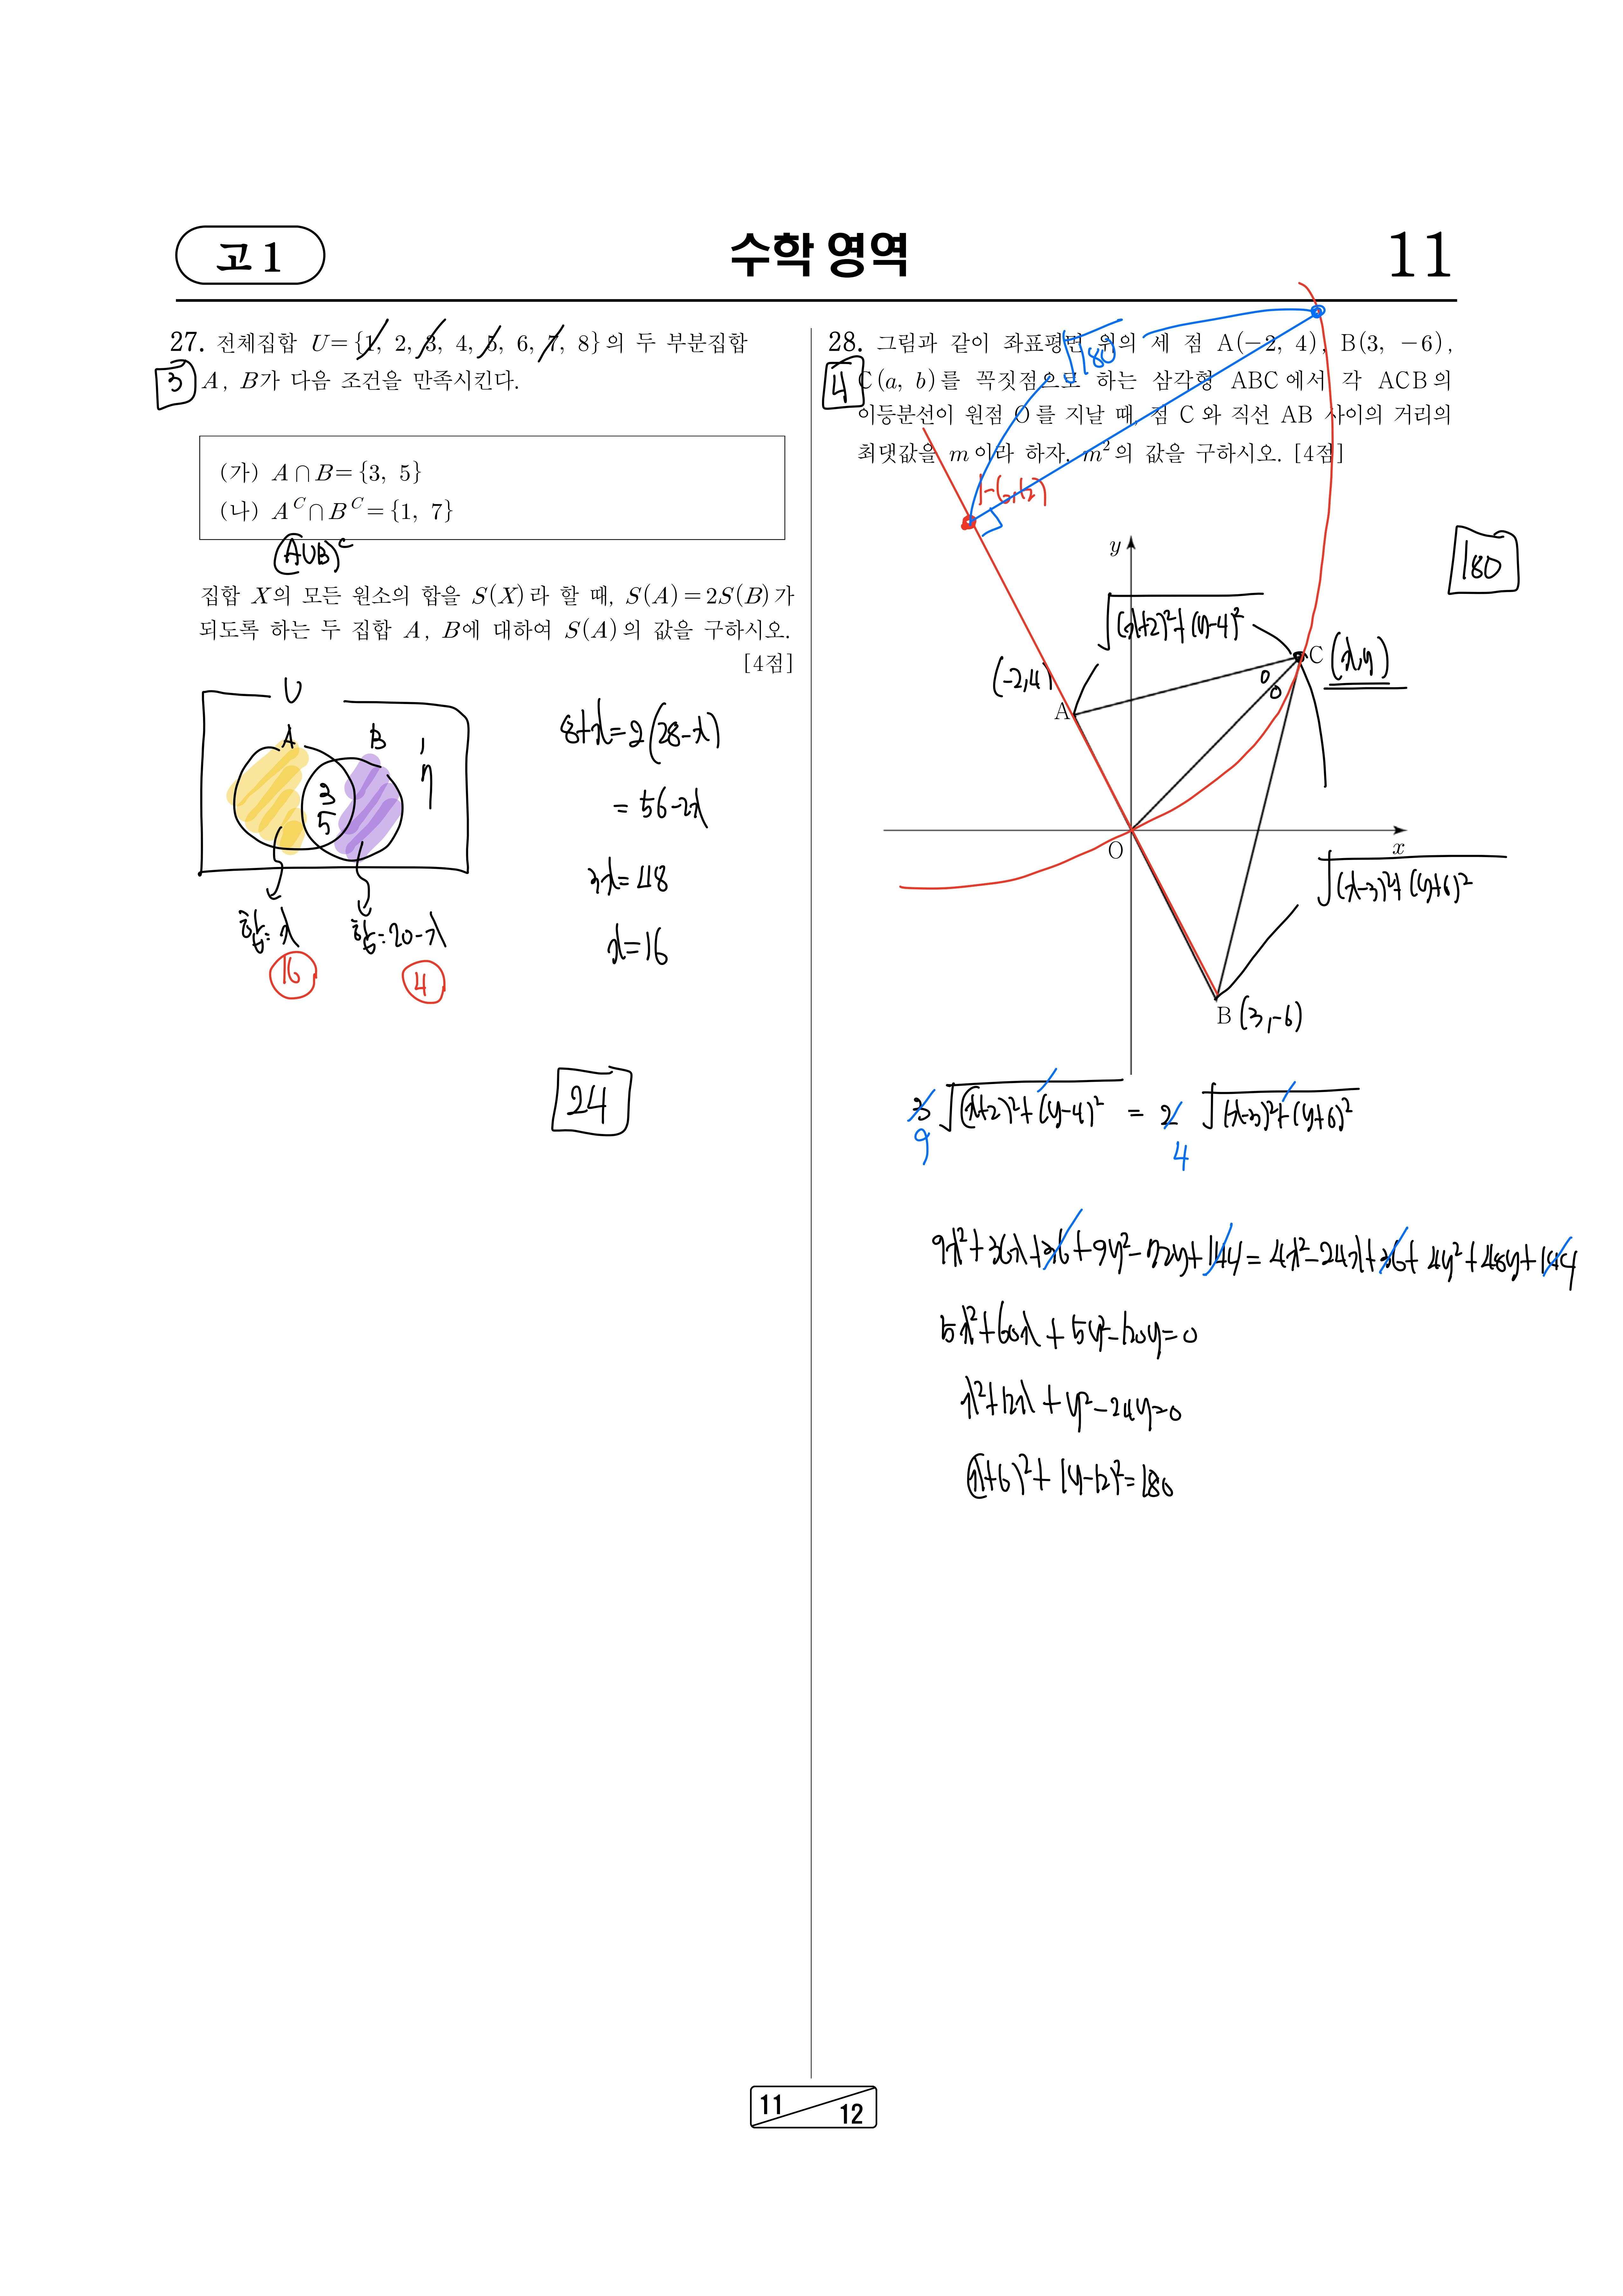 고 1
수학 영역
11
27. 전체집합 U={1, 2, 3, 4, 5, 6, 7, 8}의 두 부분집합
3
A, B가 다음 조건을 만족시킨다.
(가) A∩B={3, 5}
(나) A^C∩B^C={1, 7}
(A∪B)^c
집합 X의 모든 원소의 합을 S(X)라 할 때, S(A)=2S(B)가
되도록 하는 두 집합 A, B에 대하여 S(A)의 값을 구하시오.
[4점]
U
A B 1
7
3
5
합=x 합=20-x
16 4
8+x=2(28-x)
=56-2x
3x=48
x=16
24
28. 그림과 같이 좌표평면 위의 세 점 A(-2, 4), B(3, -6),
4
C(a, b)를 꼭짓점으로 하는 삼각형 ABC에서 각 ACB의
이등분선이 원점 O를 지날 때, 점 C와 직선 AB 사이의 거리의
최댓값을 m이라 하자. m²의 값을 구하시오. [4점]
√180
(-6,12)
180
y
√(x+2)²+(y-4)²
C (x,y)
(-2,4)
A
O
x
√(x-3)²+(y+6)²
B (3,-6)
3√(x+2)²+(y-4)² = 2√(x-3)²+(y+6)²
9 4
9x²+36x+36+9y²-72y+144=4x²-24x+36+4y²+48y+144
5x²+60x+5y²-120y=0
x²+12x+y²-24y=0
(x+6)²+(y-12)²=180
11
12